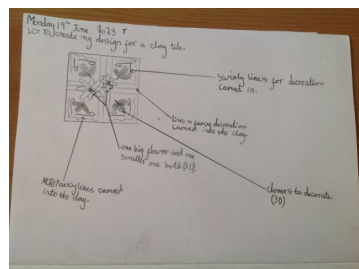 Monday 19th June 2023
LC: To create my design for a clay tile.
Swirly lines for decoration
carved in.
Lines & fancy decoration
carved into the clay.
one big flower and one
smaller one both (3D).
clovers to decorate
(3D)
More fancy lines carved
into the clay.